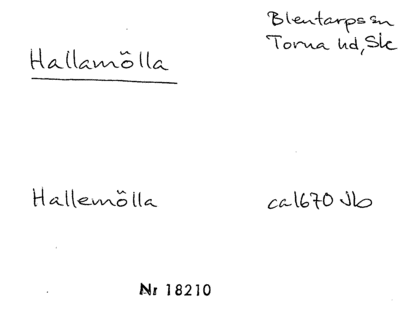 Blentarps sn
Torna hd, Sk
Hallamölla
Hallemölla
ca 1670 Jb
Nr 18210